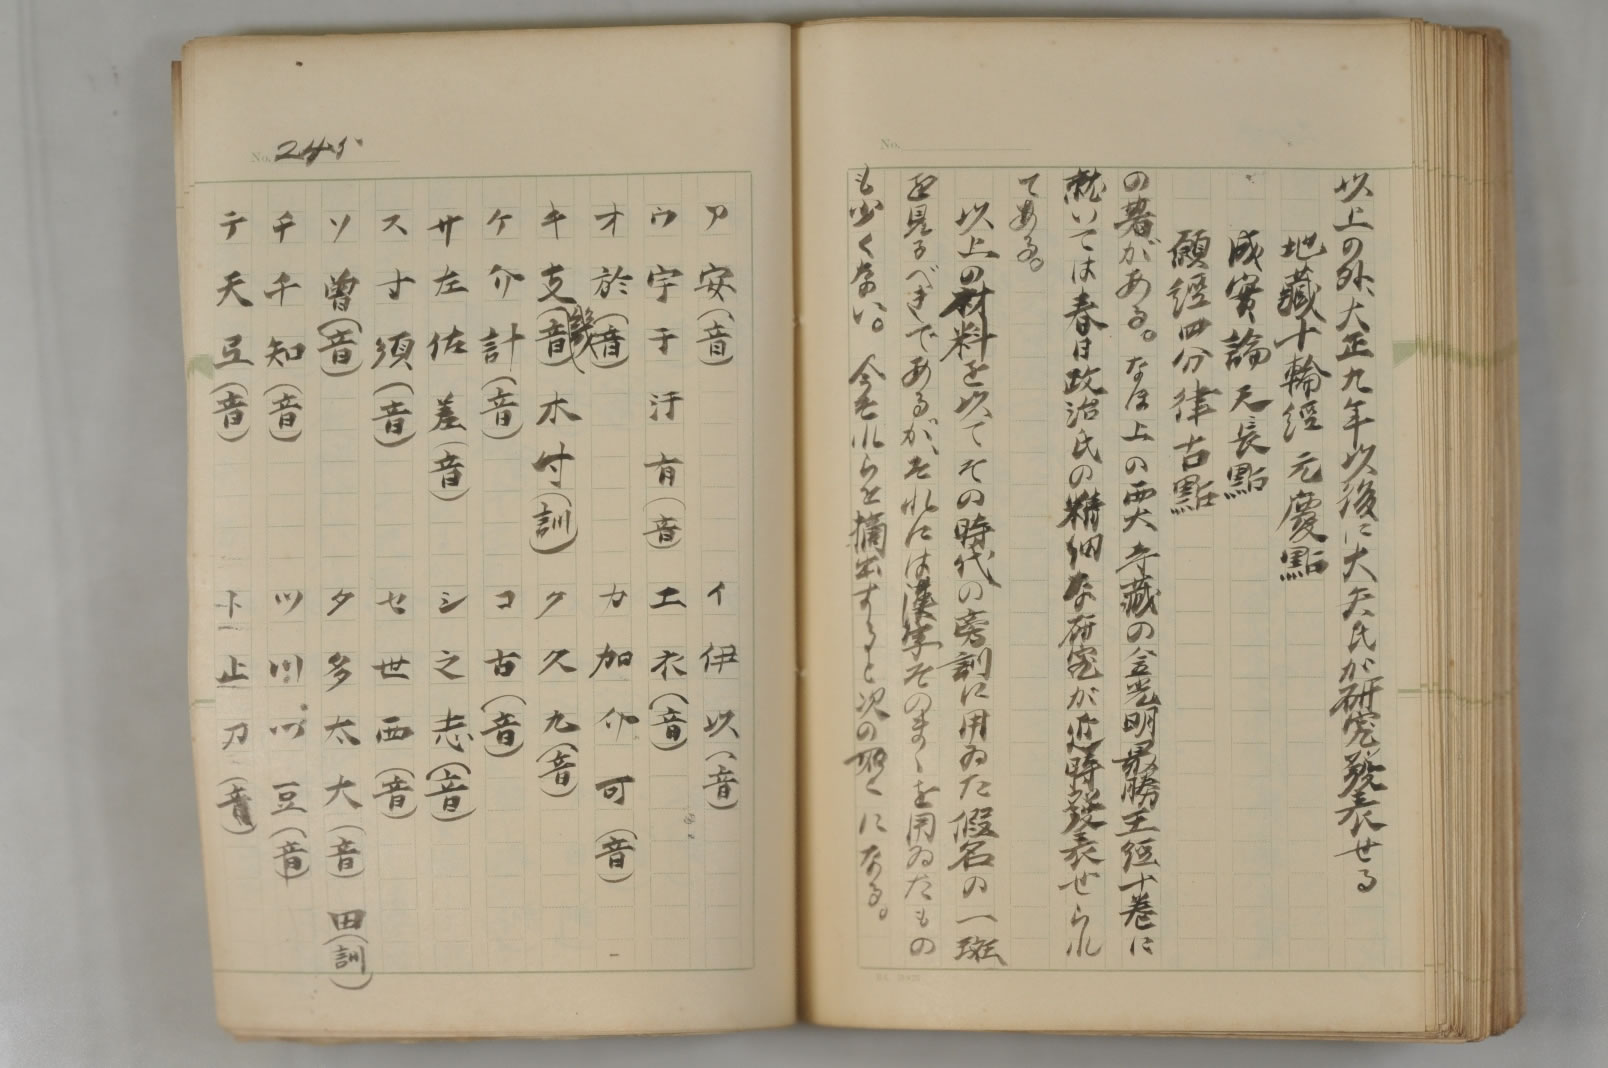 No.
以上の外、大正九年以後に大矢氏が研究發表せる
地藏十輪經 元慶點
成實論 天長點
願經四分律古點
の著がある。なほ上の西大寺藏の金光明最勝王經十卷に
就いては春日政治氏の精細な研究が近時發表せられ
てある。
以上の材料を以てその時代の旁訓に用ゐた假名の一斑
を見るべきであるが、それには漢字そのまゝを用ゐたもの
も少くない。今それらを摘出すると次の如くになる。
No. 245
ア 安(音) イ 伊 以(音)
ウ 宇 于 汙 有(音) エ 衣(音)
オ 於(音) カ 加 可(音)
キ 支 幾(音) 木 付(訓) ク 久 九(音)
ケ 介 計(音) コ 古(音)
サ 左 佐 差(音) シ 之 志(音)
ス 寸 須(音) セ 世 西(音)
ソ 曾(音) タ 多 太 大(音) 田(訓)
チ 千 知(音) ツ 川 豆(音)
テ 天 弖(音) ト 止 刀(音)